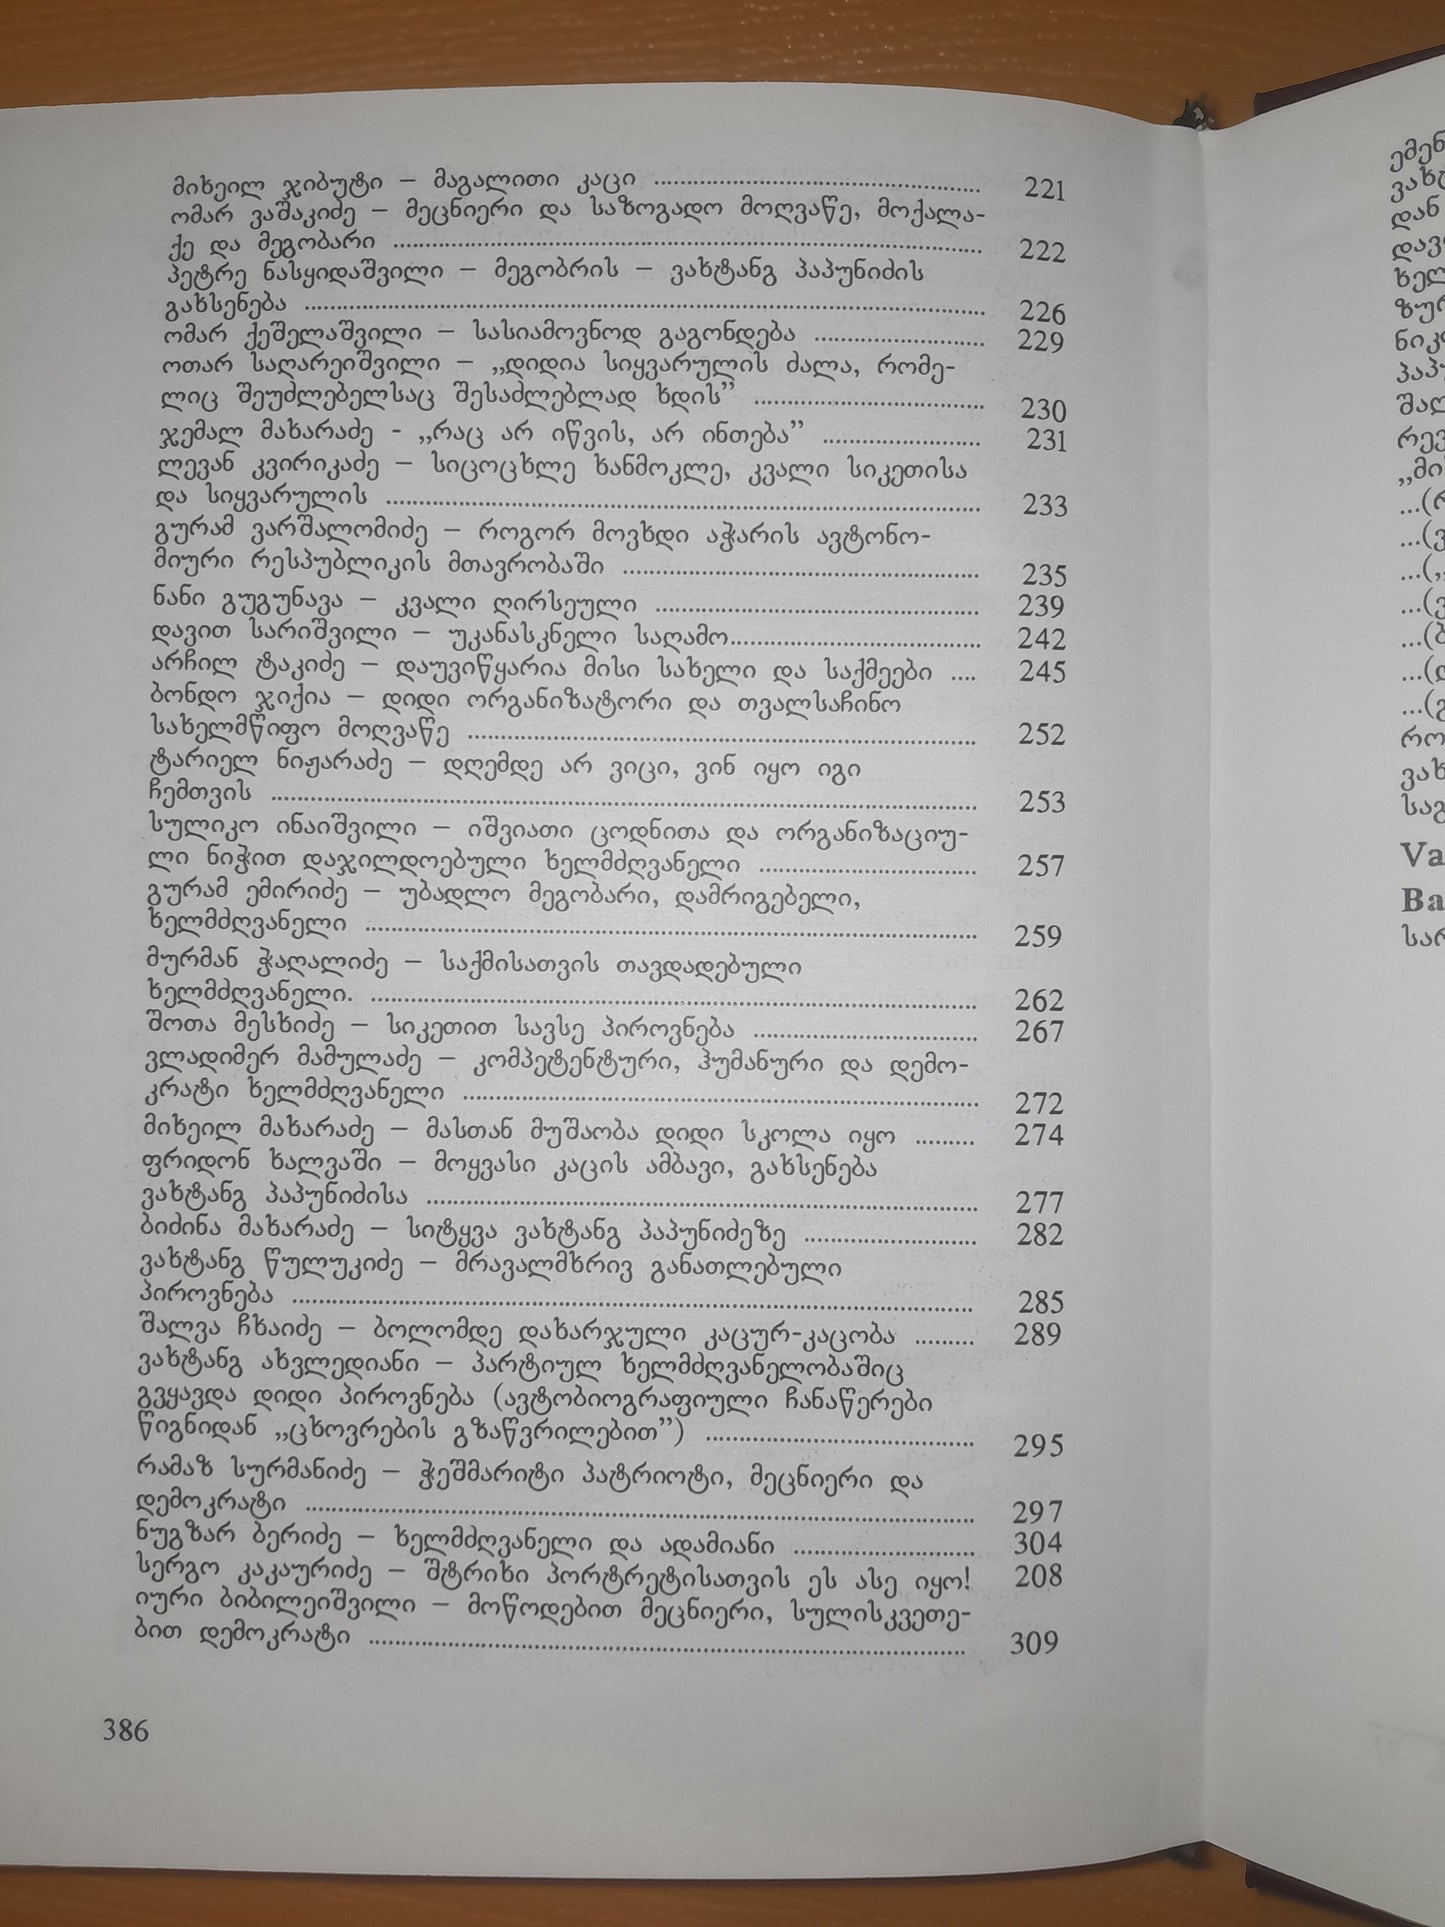 მიხეილ ჯიბუტი – მაგალითი კაცი ........ 221
ომარ ვაშაკიძე – მეცნიერი და საზოგადო მოღვაწე, მოქალა-
ქე და მეგობარი ........ 222
პეტრე ნასყიდაშვილი – მეგობრის – ვახტანგ პაპუნიძის
გახსენება ........ 226
ომარ ქეშელაშვილი – სასიამოვნოდ გაგონდება ........ 229
ოთარ საღარეიშვილი – „დიდია სიყვარულის ძალა, რომე-
ლიც შეუძლებელსაც შესაძლებლად ხდის” ........ 230
ჯემალ მახარაძე - „რაც არ იწვის, არ ინთება” ........ 231
ლევან კვირიკაძე – სიცოცხლე ხანმოკლე, კვალი სიკეთისა
და სიყვარულის ........ 233
გურამ ვარშალომიძე – როგორ მოვხდი აჭარის ავტონო-
მიური რესპუბლიკის მთავრობაში ........ 235
ნანი გუგუნავა – კვალი ღირსეული ........ 239
დავით სარიშვილი – უკანასკნელი საღამო........ 242
არჩილ ტაკიძე – დაუვიწყარია მისი სახელი და საქმეები .... 245
ბონდო ჯიქია – დიდი ორგანიზატორი და თვალსაჩინო
სახელმწიფო მოღვაწე ........ 252
ტარიელ ნიჟარაძე – დღემდე არ ვიცი, ვინ იყო იგი
ჩემთვის ........ 253
სულიკო ინაიშვილი – იშვიათი ცოდნითა და ორგანიზაციუ-
ლი ნიჭით დაჯილდოებული ხელმძღვანელი ........ 257
გურამ ემირიძე – უბადლო მეგობარი, დამრიგებელი,
ხელმძღვანელი ........ 259
მურმან ჭაღალიძე – საქმისათვის თავდადებული
ხელმძღვანელი. ........ 262
შოთა მესხიძე – სიკეთით სავსე პიროვნება ........ 267
ვლადიმერ მამულაძე – კომპეტენტური, ჰუმანური და დემო-
კრატი ხელმძღვანელი ........ 272
მიხეილ მახარაძე – მასთან მუშაობა დიდი სკოლა იყო ......... 274
ფრიდონ ხალვაში – მოყვასი კაცის ამბავი, გახსენება
ვახტანგ პაპუნიძისა ........ 277
ბიძინა მახარაძე – სიტყვა ვახტანგ პაპუნიძეზე ........ 282
ვახტანგ წულუკიძე – მრავალმხრივ განათლებული
პიროვნება ........ 285
შალვა ჩხაიძე – ბოლომდე დახარჯული კაცურ-კაცობა ......... 289
ვახტანგ ახვლედიანი – პარტიულ ხელმძღვანელობაშიც
გვყავდა დიდი პიროვნება (ავტობიოგრაფიული ჩანაწერები
წიგნიდან „ცხოვრების გზაწვრილებით”) ........ 295
რამაზ სურმანიძე – ჭეშმარიტი პატრიოტი, მეცნიერი და
დემოკრატი ........ 297
ნუგზარ ბერიძე – ხელმძღვანელი და ადამიანი ........ 304
სერგო კაკაურიძე – შტრიხი პორტრეტისათვის ეს ასე იყო! 208
იური ბიბილეიშვილი – მოწოდებით მეცნიერი, სულისკვეთე-
ბით დემოკრატი ........ 309
386